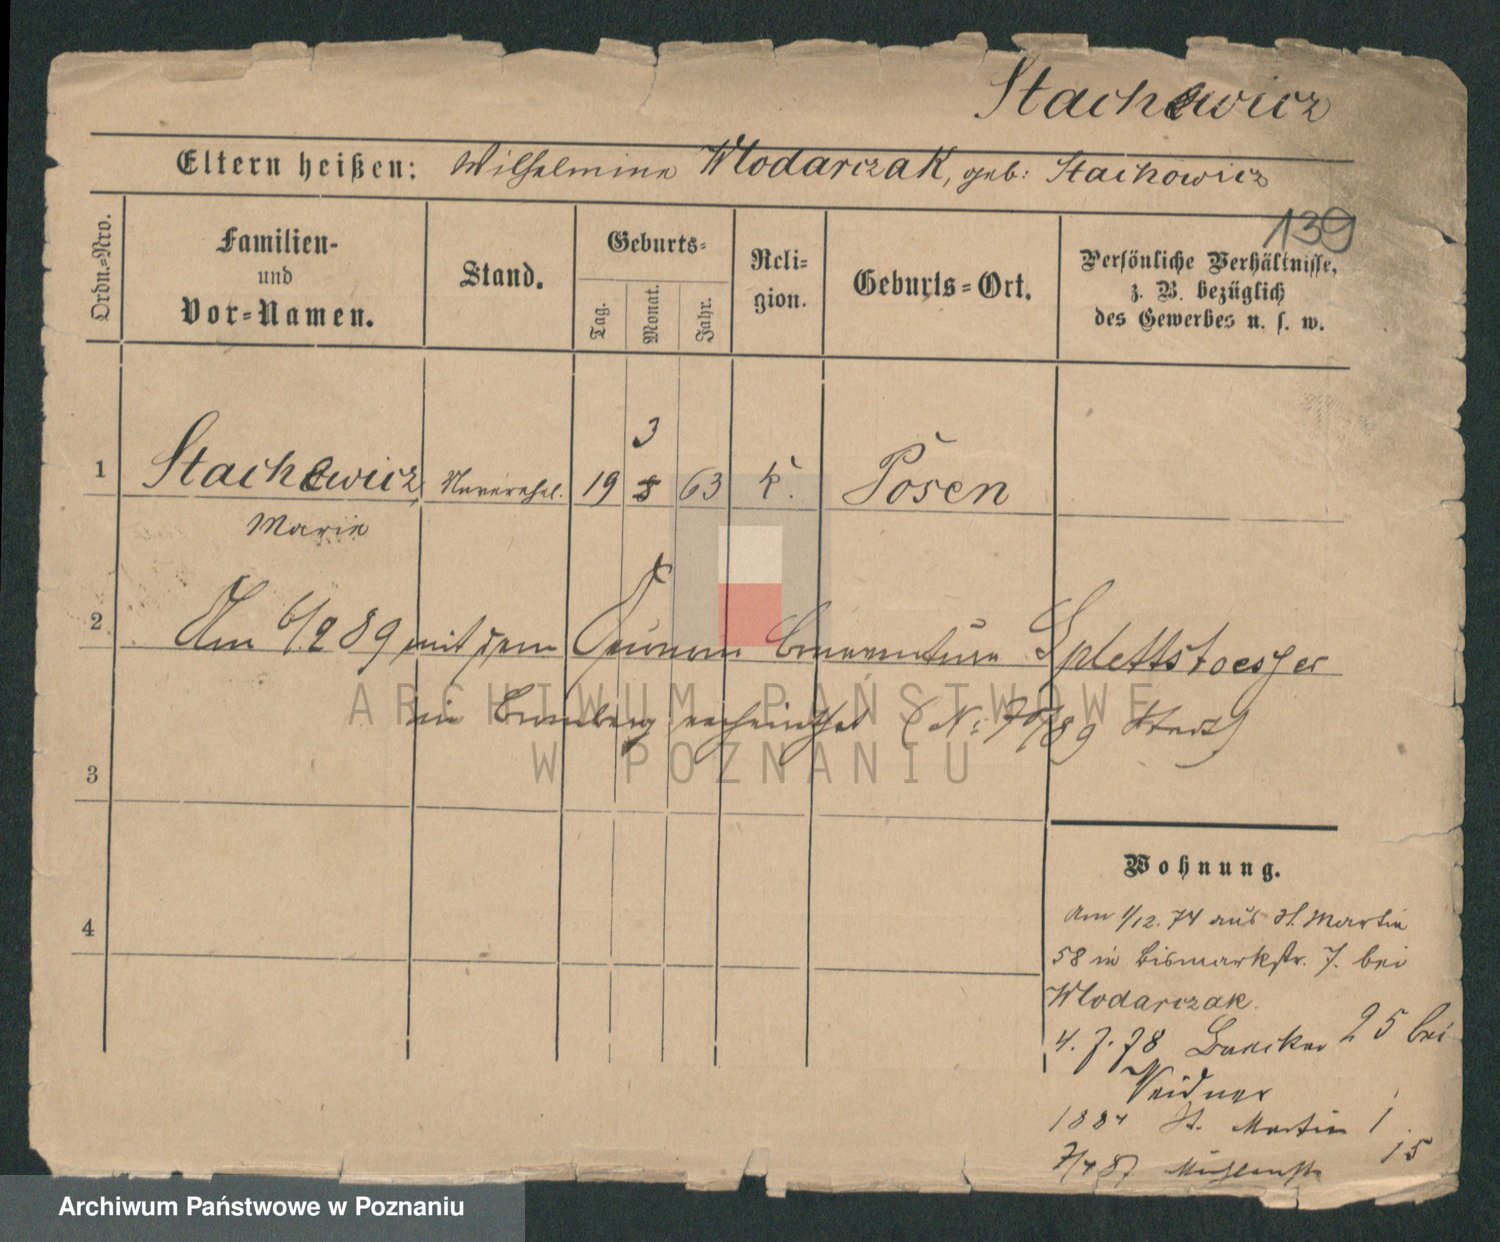 Stachewicz
Eltern heißen: Wilhelmine Wlodarczak, geb: Stachowicz
139
Ordn.-Nro.
Familien-
und
Vor-Namen.
Stand.
Geburts-
Tag.
Monat.
Jahr.
Reli-
gion.
Geburts-Ort.
Persönliche Verhältnisse,
z. B. bezüglich
des Gewerbes u. s. w.
3
1 Stachewicz 19 8 63 k. Posen
Marie
2 Am 6/2 89 mit dem Bonaventura Splettstoesser
in (N: 70/89
3
4
Wohnung.
Am 1/12. 74 aus St. Martin
58 in Bismarkstr. 7. bei
Wlodarczak.
4. 7. 78 25 bei
Weidner
1884 St. Martin 1
7/4 87 Mühlenstr 15
ARCHIWUM PAŃSTWOWE
W POZNANIU
Archiwum Państwowe w Poznaniu